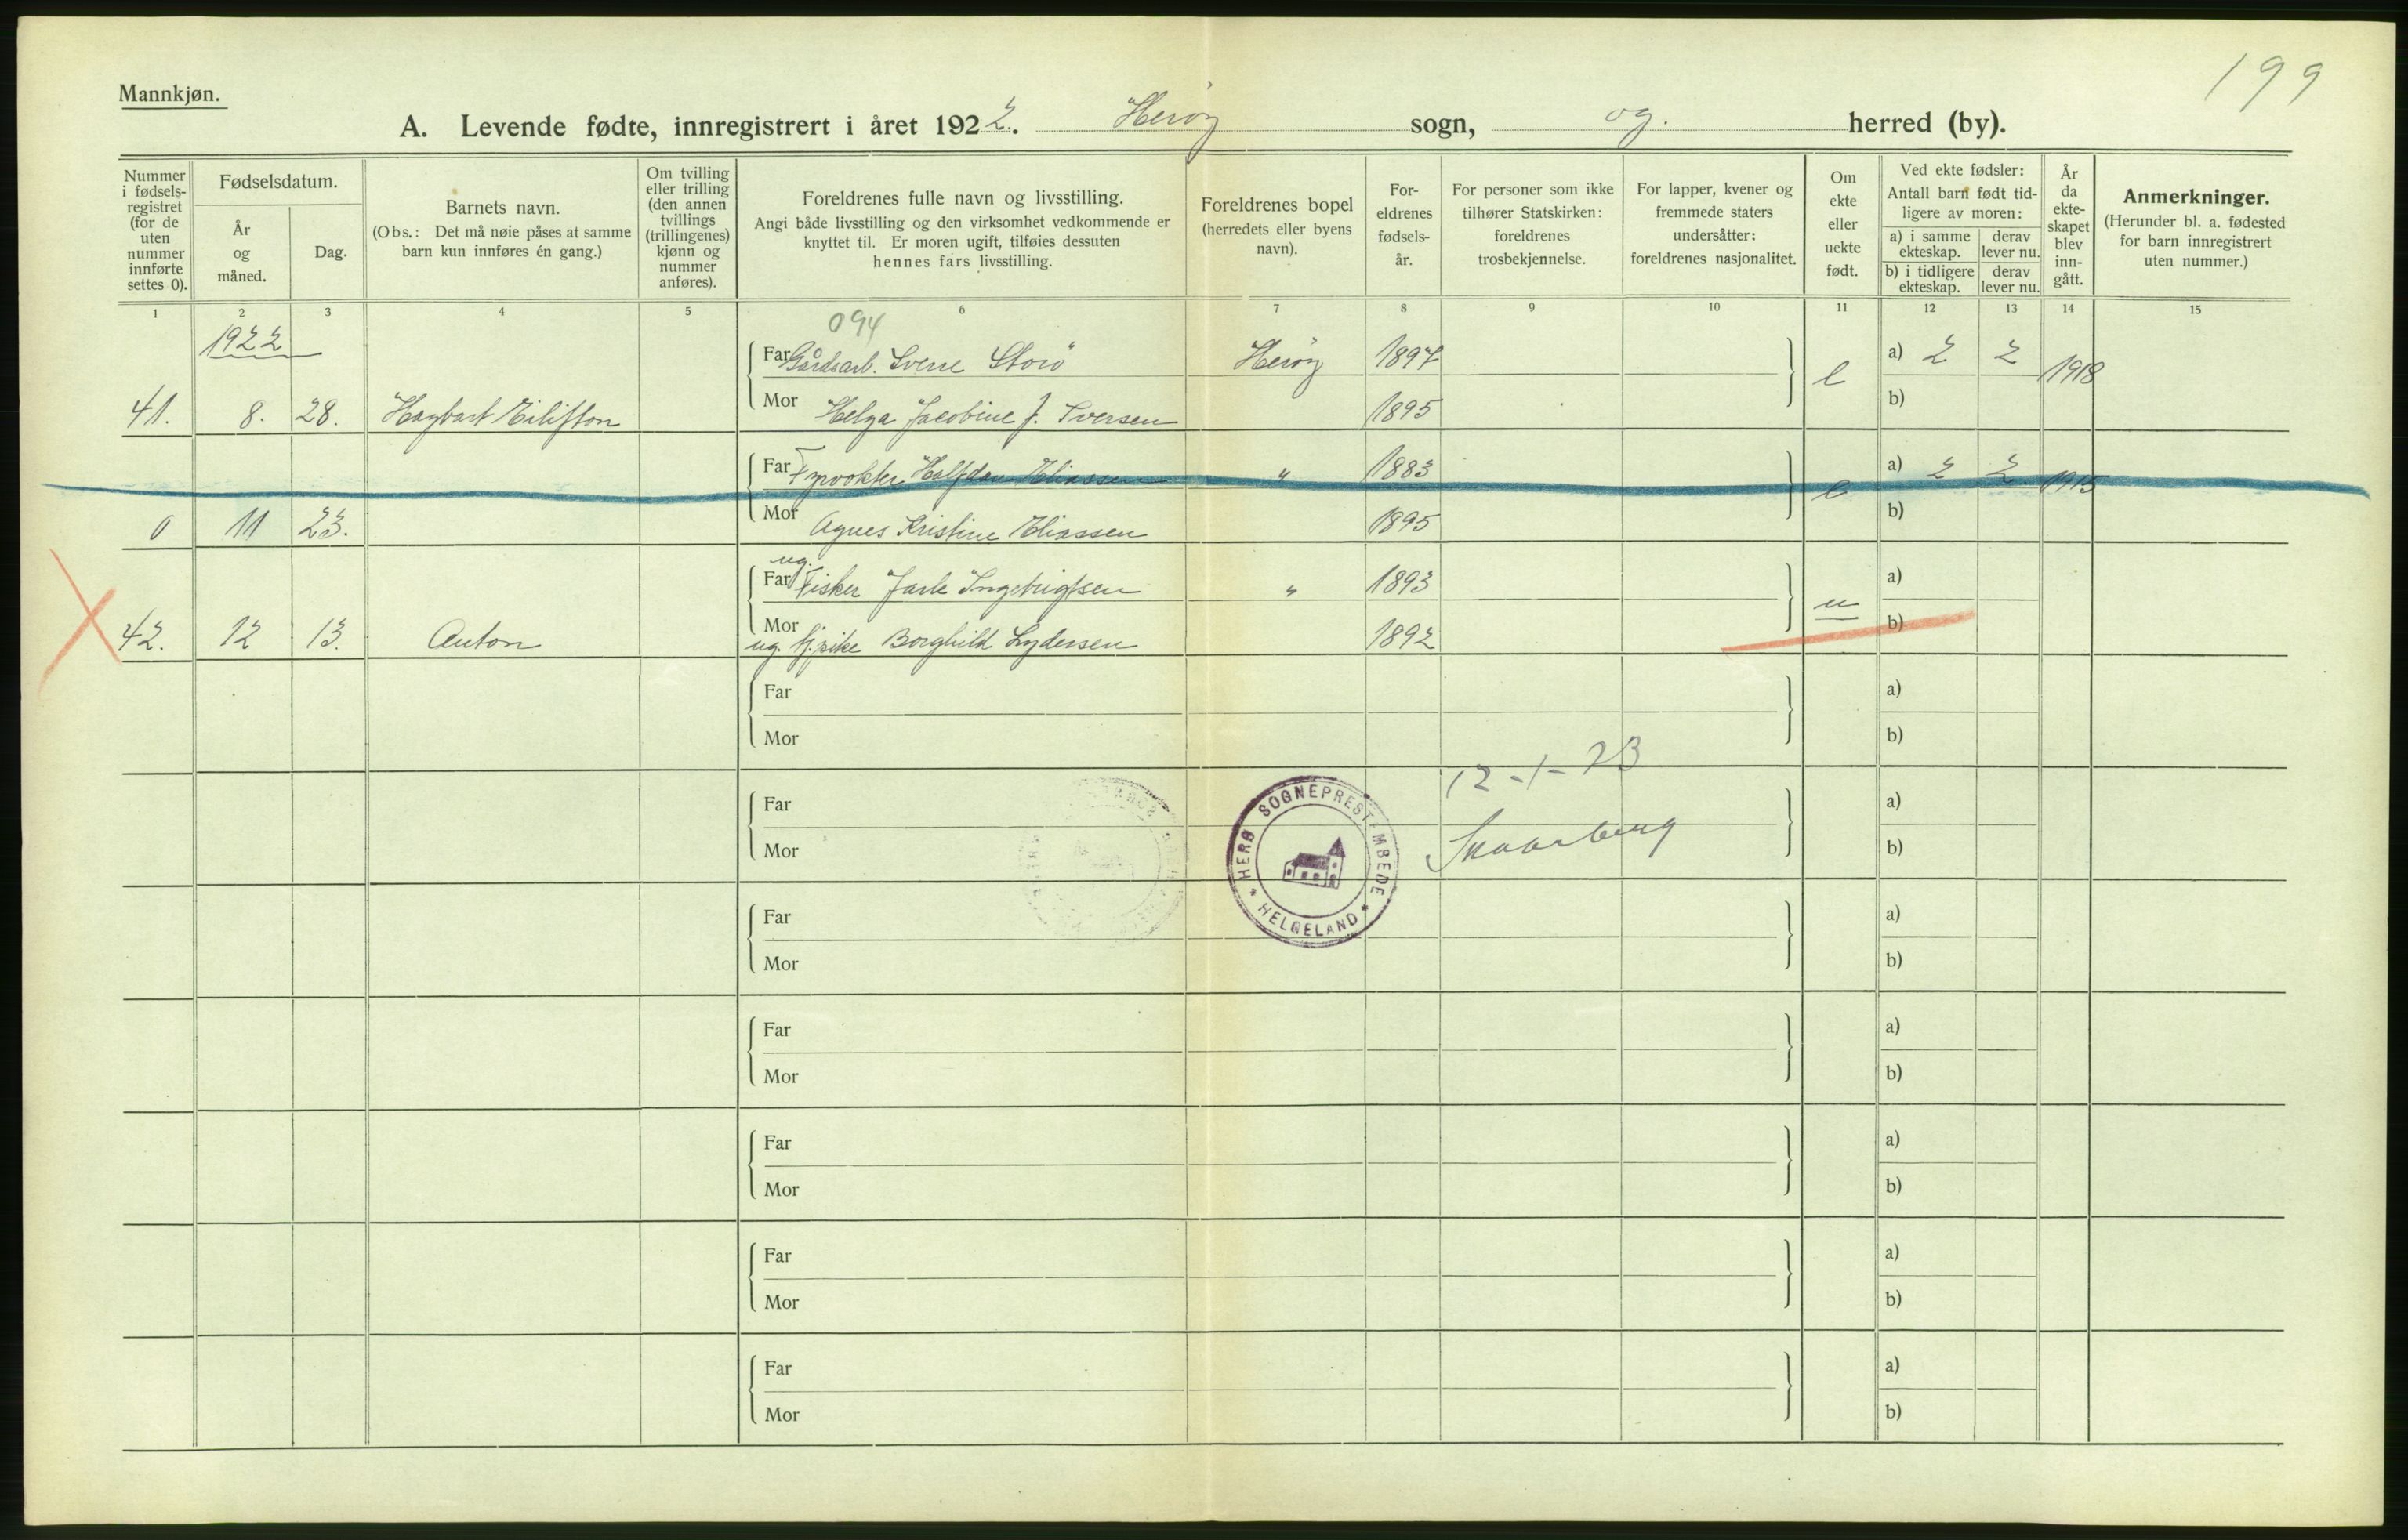 199
Mannkjøn.
A. Levende fødte, innregistrert i året 1922. Herøy sogn, og. herred (by).
Nummer i fødsels-registret (for de uten nummer innførte settes 0).
Fødselsdatum.
År og måned.
Dag.
Barnets navn.
(Obs.: Det må nøie påses at samme barn kun innføres én gang.)
Om tvilling eller trilling (den annen tvillings (trillingenes) kjønn og nummer anføres).
Foreldrenes fulle navn og livsstilling.
Angi både livsstilling og den virksomhet vedkommende er knyttet til. Er moren ugift, tilføies dessuten hennes fars livsstilling.
Foreldrenes bopel (herredets eller byens navn).
For-eldrenes fødsels-år.
For personer som ikke tilhører Statskirken: foreldrenes trosbekjennelse.
For lapper, kvener og fremmede staters undersåtter: foreldrenes nasjonalitet.
Om ekte eller uekte født.
Ved ekte fødsler: Antall barn født tid-ligere av moren:
a) i samme ekteskap.
derav lever nu.
b) i tidligere ekteskap.
derav lever nu.
År da ekte-skapet blev inn-gått.
Anmerkninger.
(Herunder bl. a. fødested for barn innregistrert uten nummer.)
1 2 3 4 5 6 7 8 9 10 11 12 13 14 15
094
1922
Far Gårdsarb. Sverre Storø Herøy 1897 e a) 2 2 1918
41. 8. 28. Hagbart Eilifson Mor Helga Jacobine J. Iversen 1895 b)
Far Fyrvokter Halfdan Eliassen " 1883 e a) 2 2 1915
0 11 23. Mor Agnes Kristine Eliassen 1895 b)
ug.
Far Fisker Jarle Ingebrigtsen " 1893 u a)
42. 12 13. Anton Mor ug. tj.pike Borghild Lydersen 1892 b)
Far a)
Mor b)
12-1-23
Far a)
Mor b)
Skaarberg
HERØ SOGNEPRESTEMBEDE
* HELGELAND *
Far a)
Mor b)
Far a)
Mor b)
Far a)
Mor b)
Far a)
Mor b)
Far a)
Mor b)